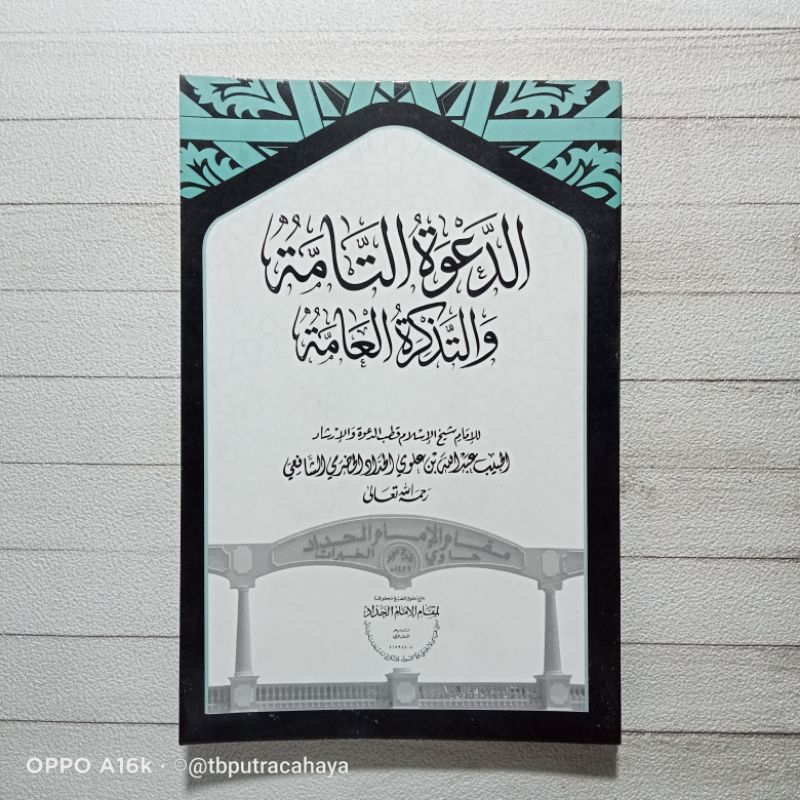 الدَّعْوَةُ التَّامَّةُ
وَالتَّذْكِرَةُ الْعَامَّةُ
للإمام شيخ الإسلام قطب الدعوة والإرشاد
الحبيب عبد الله بن علوي الحداد الحضرمي الشافعي
رحمه الله تعالى
مقام الإمام الحداد
حاوي الخيرات
جميع حقوق الطبع محفوظة
لمقام الإمام الحداد
OPPO A16k · @tbputracahaya